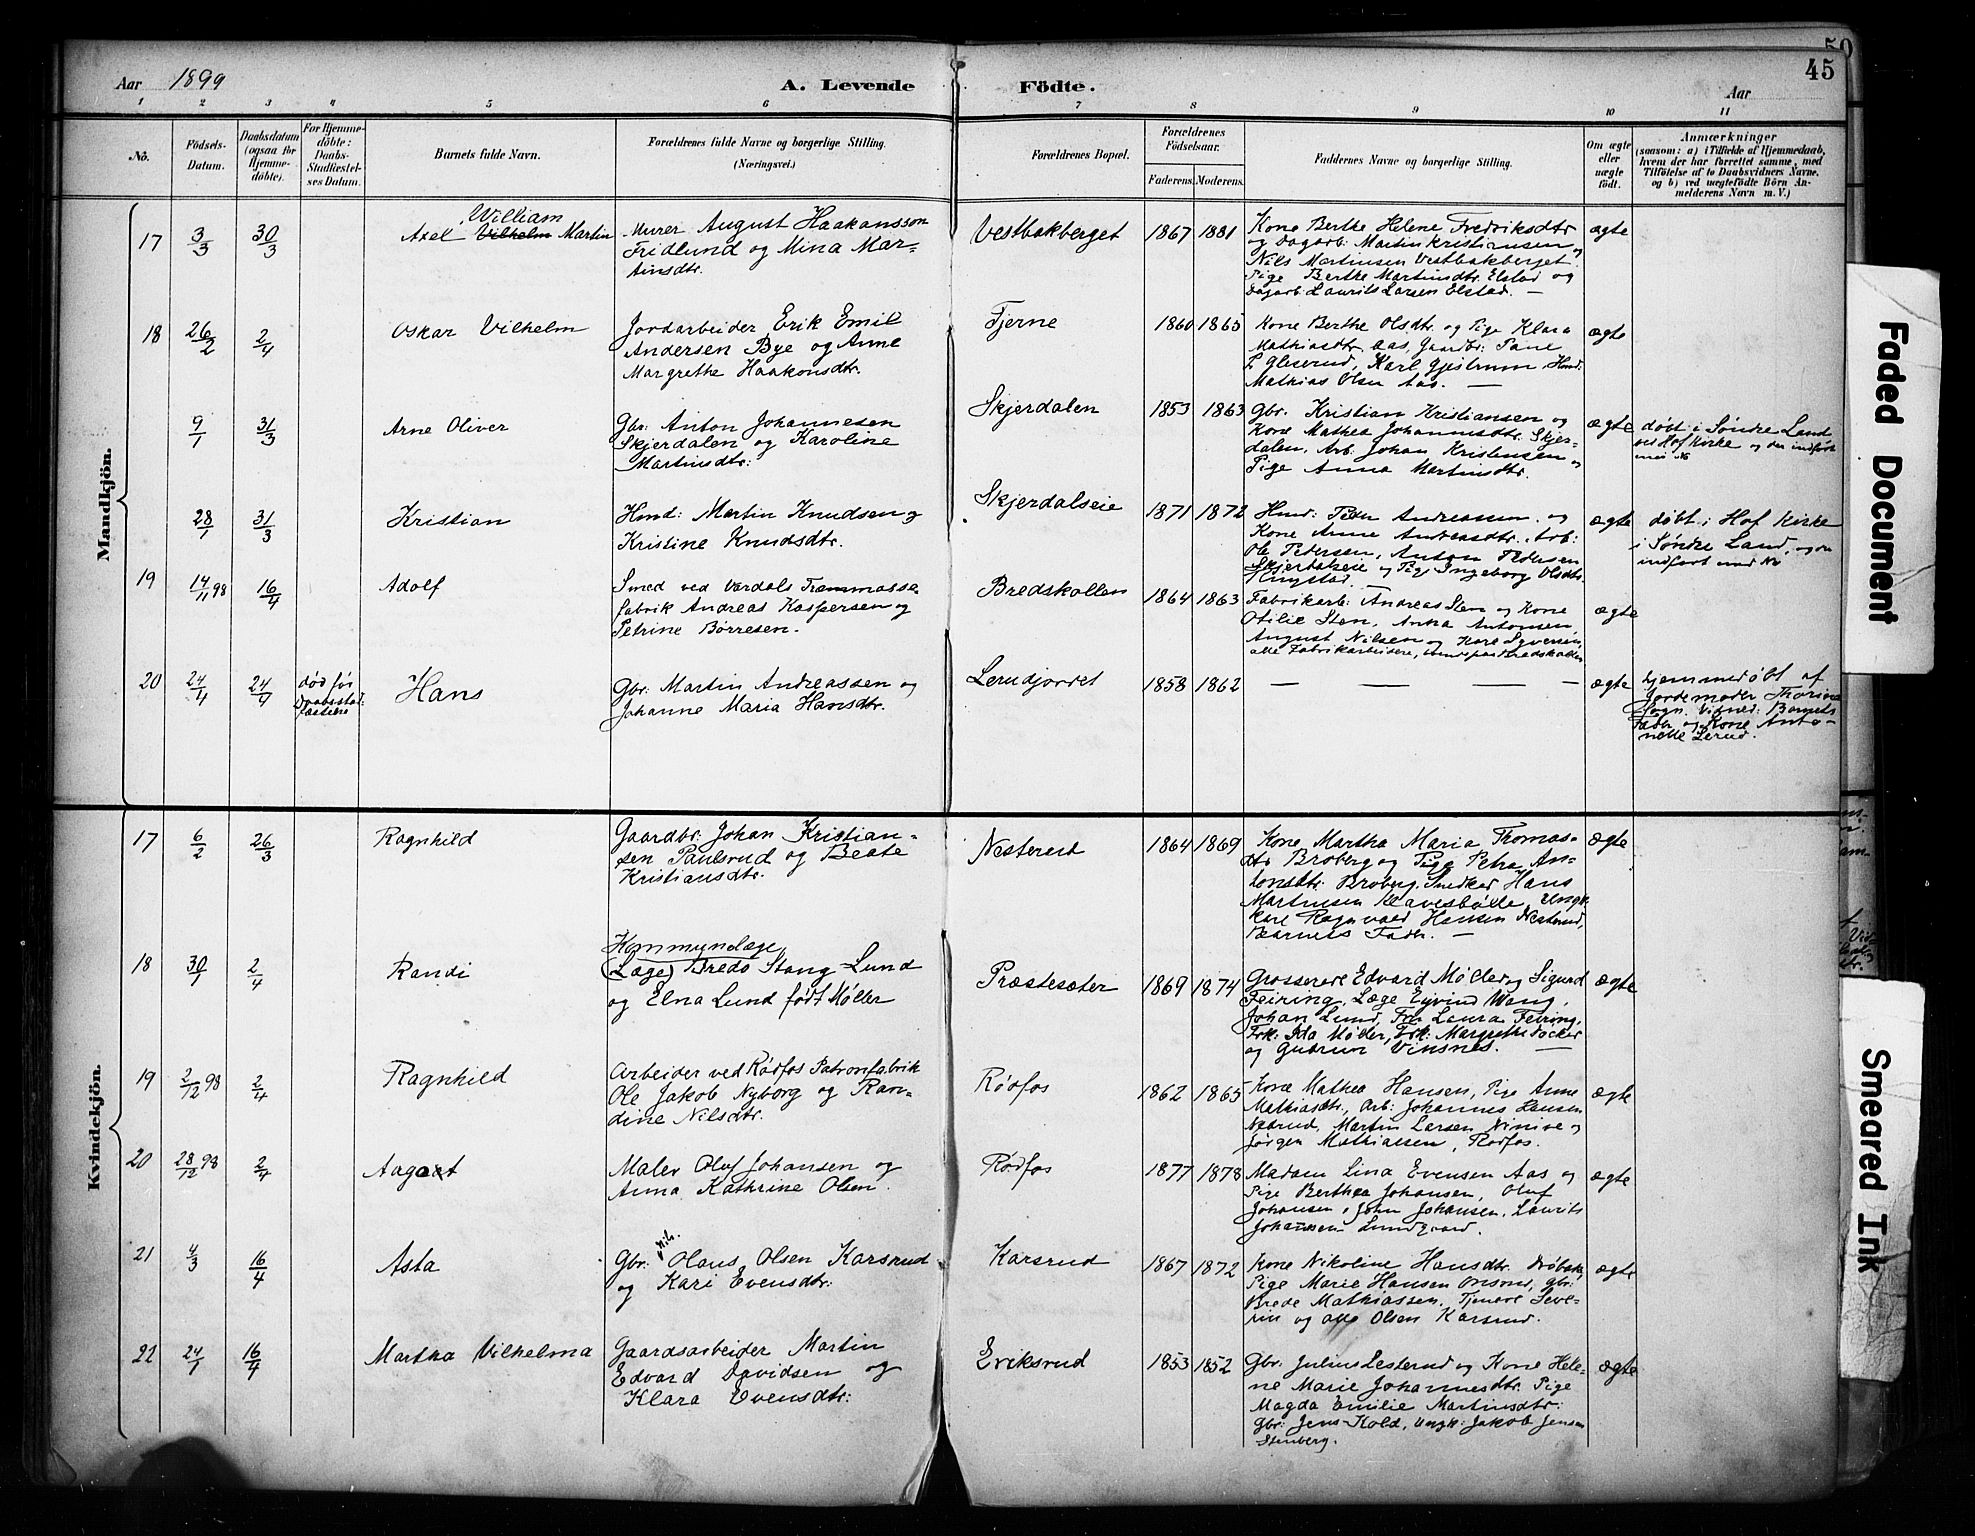 50
45
Aar 1899
A. Levende Födte.
Aar
1 2 3 4 5 6 7 8 9 10 11
No.
Födsels-Datum.
Daabsdatum (ogsaa for Hjemme-döbte).
For Hjemme-döbte: Daabs-Stadfæstel-ses Datum.
Barnets fulde Navn.
Forældrenes fulde Navne og borgerlige Stilling. (Næringsvei.)
Forældrenes Bopæl.
Forældrenes Födselsaar.
Faderens. Moderens.
Faddernes Navne og borgerlige Stilling.
Om ægte eller uægte födt.
Anmærkninger
(saasom: a) i Tilfælde af Hjemmedaab, hvem der har forrettet samme, med Tilföielse af to Daabsvidners Navne, og b) ved uægtefödte Börn An-melderens Navn m. V.)
Mandkjön.
17 3/3 30/3 Axel Vilhelm William Martin
Murer August Haakansson
Fridlund og Mina Mar-
tinsdtr.
Vestbakberget 1867 1881
Kone Berthe Helene Fredriksdtr
og Dagarb: Martin Kristiansen og
Nils Martinsen Vestbakberget.
Pige Berthe Martinsdtr. Elstad og
Dagarb: Laurits Larsen Elstad. —
ægte
18 26/2 2/4 Oskar Vilhelm
Jordarbeider Erik Emil
Andersen Bye og Anne
Margrethe Haakonsdtr.
Tjerne 1860 1865
Kone Berthe Olsdtr. og Pige Klara
Mathiasdtr. Aas, Gaardbr:
Karl Gjestrum
Mathias Olsen Aas. —
ægte
9/1 31/3 Arne Oliver
Gbr: Anton Johannesen
Skjerdalen og Karoline
Martinsdtr:
Skjerdalen 1853 1863
Gbr. Kristian Kristiansen og
Kone Mathea Johannisdtr. Skjer-
dalen, Arb. Johan Kristensen og
Pige Anna Martinsdtr.
ægte
døbt i Søndre Land
ved Hof Kirke og der indført
med No
28/1 31/3 Kristian
Hmd: Martin Knudsen og
Kristine Knudsdtr.
Skjerdalseie 1871 1872
Hmd: Peder Andreassen og
Kone Anne Andreasdtr. Arb:
Ole Pedersen, Anton Pedersen
Skjerdalseie og Pige Ingeborg Olsdtr.
ægte
døbt i Hof Kirke
i Søndre Land, og der
indført med No
19 14/11 98 16/4 Adolf
Smed ved Vardals Træmasse
fabrik Andreas Kaspersen og
Petrine Børresen.
Bredskollen 1864 1863
Fabrikarb: Andreas Sten og Kone
Otilie Sten, Anna Antonsen
August Nilsen og Karl Syversen,
alle Fabrikarbeidere, Bredskollen
ægte
20 24/4 24/4 død før
Daabsstad-
fæstelse
Hans
Gbr: Martin Andreassen og
Johanne Maria Hansdtr.
Lerudjordet 1858 1862 — — — — ægte
hjemmedøbt af
Jordemoder Thorine
Vidner: Barnets
Fader og Kone Anto-
nette Lerud.
Kvindekjön.
17 6/2 26/3 Ragnhild
Gaardbr: Johan Kristian-
sen Paulsrud og Beate
Kristiansdtr.
Nesterud 1864 1869
Kone Martha Maria Thomas-
dtr. Broberg og Pige Petra An-
tonsdtr. Broberg. Snedker Hans
Martinsen Ungk.
karl Ragnvald Hansen Nesterud,
Barnets Fader. —
ægte
18 30/1 2/4 Randi
Kommunelæge
(Læge) Bredo Stang Lund
og Elna Lund født Møller
Præstesæter 1869 1874
Grosserere Edvard Møller og Sigurd
Feiring, Læge Eyvind Wang,
Johan Lund, Fru Laura Feiring,
Frk: Ida Møller, Frk: Margrethe Døcker
og Gudrun Vinsnes. —
ægte
19 2/12 98 2/4 Ragnhild
Arbeider ved Rødfos Patronfabrik
Ole Jakob Nyborg og Ran-
dine Nilsdtr.
Rødfos 1862 1865
Kone Mathea Hansen, Pige Anne
Mathiasdtr, Arb: Johannes Hansen
Nesterud, Martin Larsen Ninive og
Jørgen Mathiassen, Rødfos.
ægte
20 28/12 98 2/4 Aagot
Maler Oluf Johansen og
Anna Kathrine Olsen.
Rødfos 1877 1878
Madam Lina Evensen Aas og
Pige Berthea Johansen, Oluf
Johansen, John Johansen, Laurits
Johansen Lundgaard.
ægte
21 4/3 16/4 Asta
Gbr: Olaus Olsen Karsrud
og Kari Evensdtr.
Karsrud 1867 1872
Kone Nikoline Hansdtr.
Pige Marie Hansen gbr:
Brede Mathiassen, Tjenere Seve-
rin og Otto Olsen Karsrud.
ægte
22 24/1 16/4 Martha Vilhelma
Gaardsarbeider Martin
Edvard Davidsen og
Klara Evensdtr:
Eriksrud 1853 1852
Gbr: Julius Lesterud og Kone Hele-
ne Marie Johannesdtr. Pige
Magda Emilie Martinsdtr:
Gbr: Jens Kold, Ungk: Jakob Jensen
Stenberg.
ægte
Faded Document
Smeared Ink